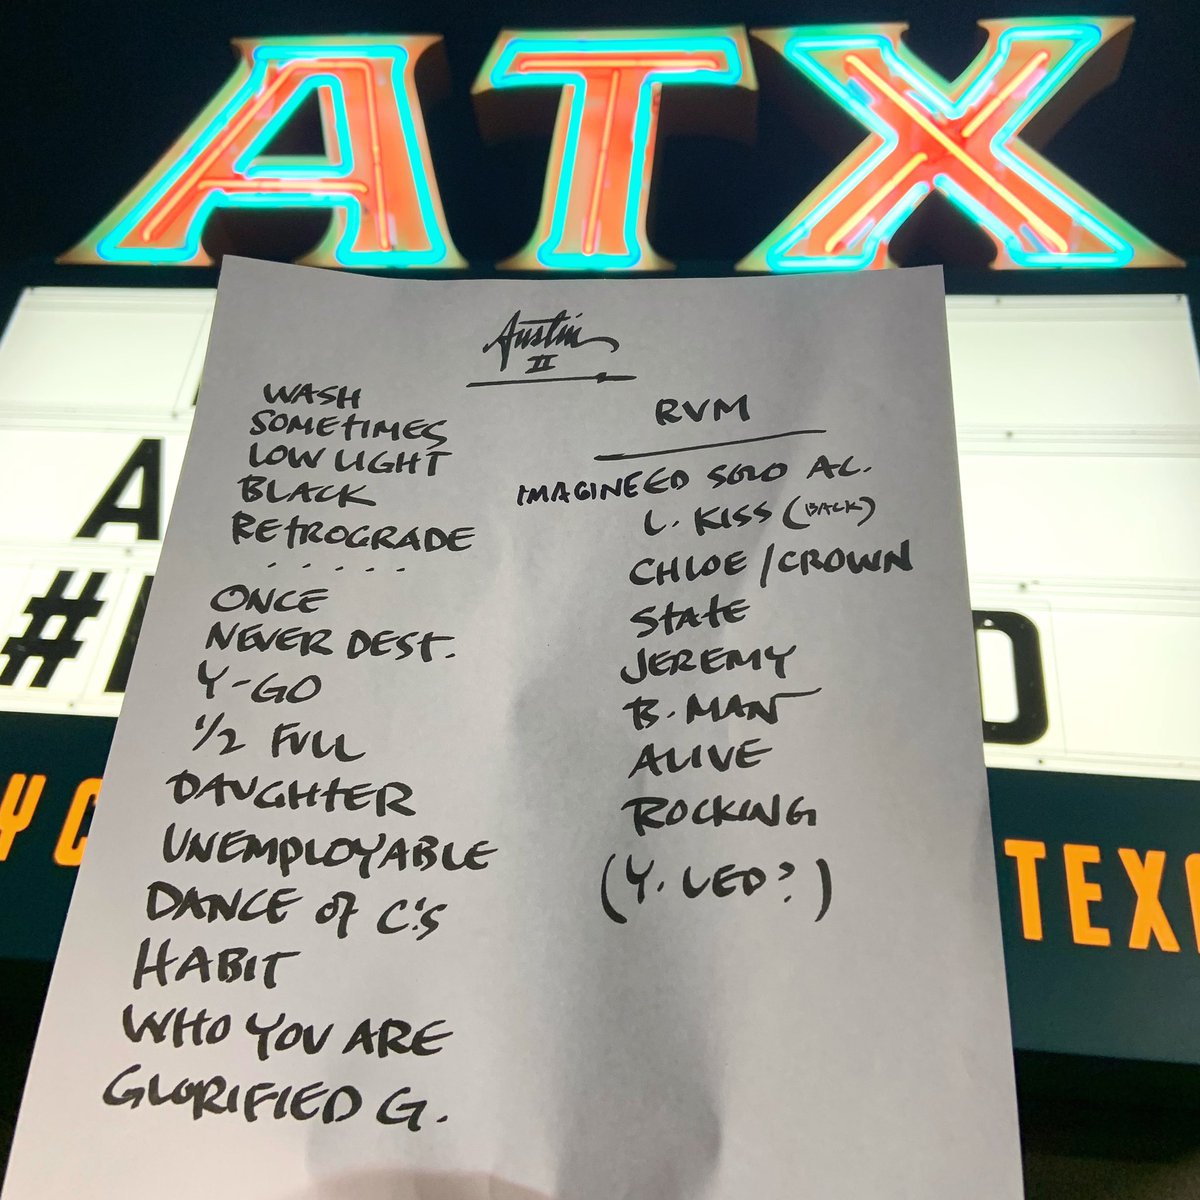 ATX
Austin
II
WASH
SOMETIMES
LOW LIGHT
BLACK
RETROGRADE
. . . . .
ONCE
NEVER DEST.
Y-GO
1/2 FULL
DAUGHTER
UNEMPLOYABLE
DANCE of C.'S
HABIT
WHO YOU ARE
GLORIFIED G.
RVM
IMAGINEED SOLO AC.
L. KISS (BACK)
CHLOE/CROWN
STATE
JEREMY
B. MAN
ALIVE
ROCKING
(Y. LED?)
A
#
Y C
TEXA